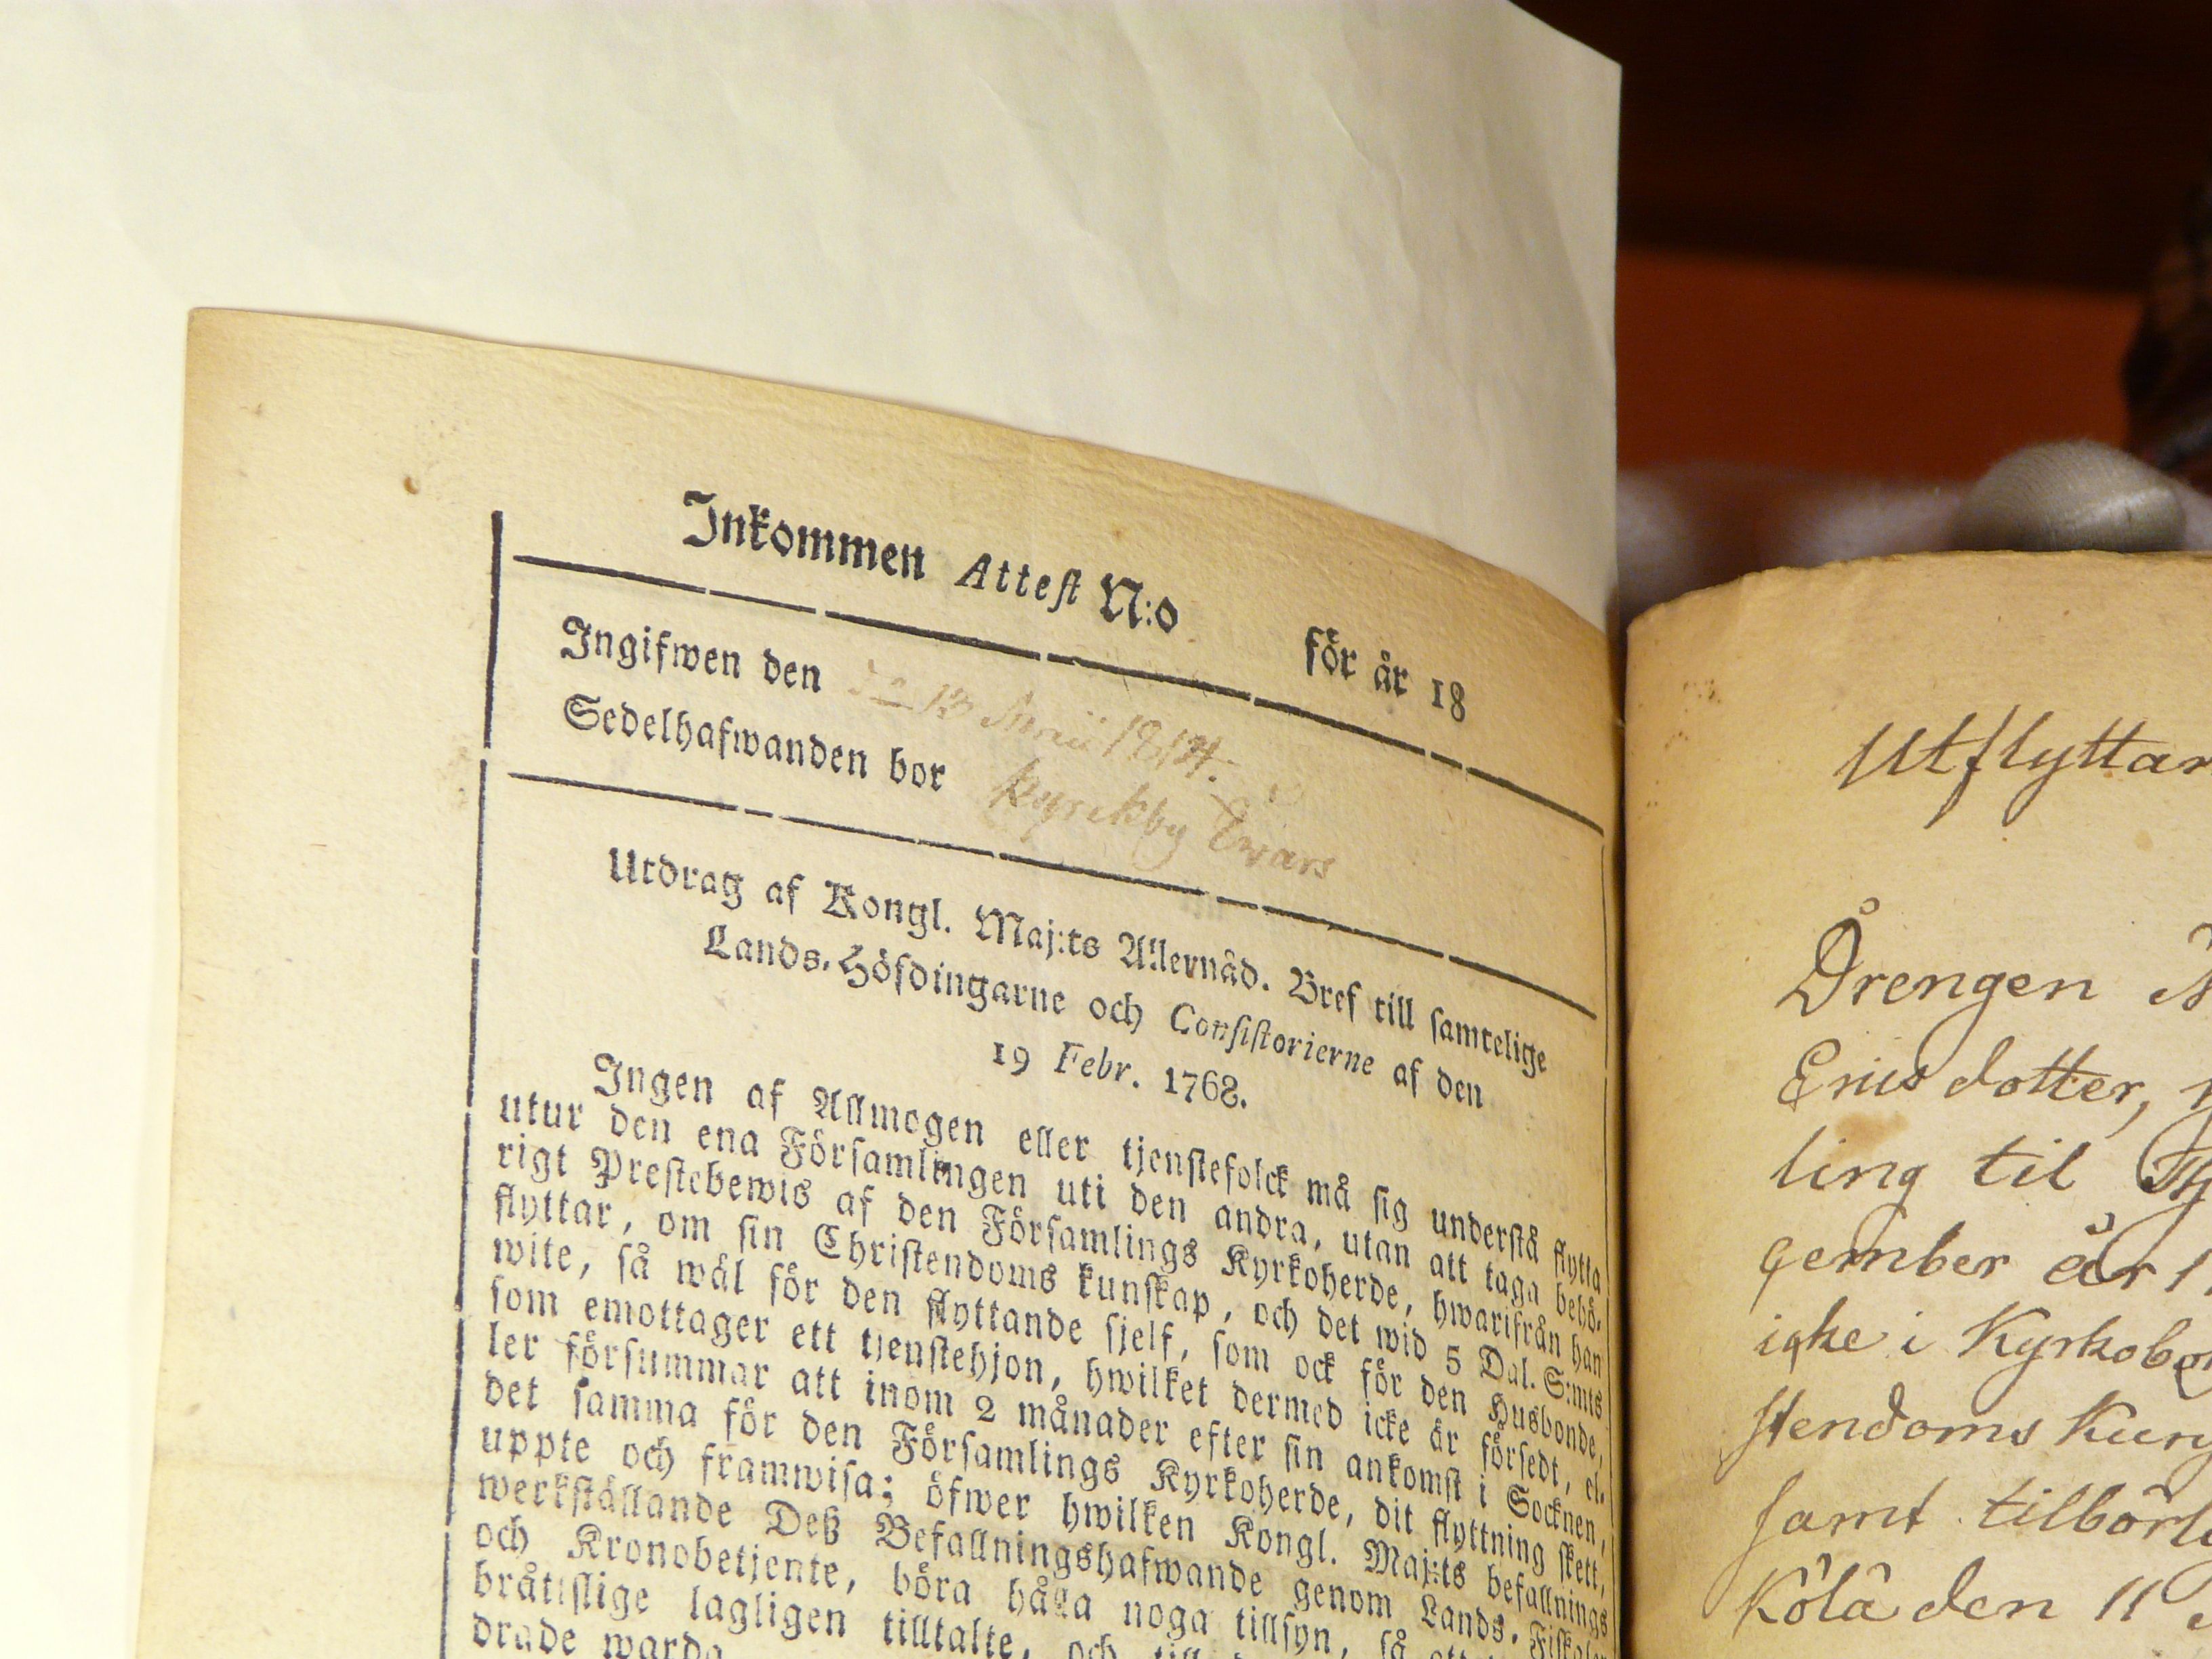 Inkommen Attest N:o för år 18
Ingifwen den 13 Martii 1814.
Sedelhafwanden bor Kyrckby Ewars
Utdrag af Kongl. Maj:ts Allernåd. Bref till samtelige
Lands-Höfdingarne och Consistorierne af den
19 Febr. 1768.
Ingen af Allmogen eller tjenstefolck må sig understå flytta
utur den ena Församlingen uti den andra, utan att taga behö-
rigt Prestebewis af den Församlings Kyrkoherde, hwarifrån han
flyttar, om sin Christendoms kunskap, och det wid 5 Dal. S:mts
wite, så wäl för den flyttande sjelf, som ock för den Husbonde,
som emottager ett tjenstehjon, hwilket dermed icke är försedt, el-
ler försummar att inom 2 månader efter sin ankomst i Socknen,
det samma för den Församlings Kyrkoherde, dit flyttning skett,
uppte och framwisa; öfwer hwilken Kongl. Maj:ts befallnings
werkställande Deß Befallningshafwande genom Lands-Fiskaler
och Kronobetjente, böra hålla noga tillsyn, så att
bråttslige lagligen tilltalte, och
drade warda
Utflyttan
Drengen
Ericsdotter,
ling til
cember år 1
icke i Kyrkobok
stendoms Kun
samt tilbörl
Kölå den 11